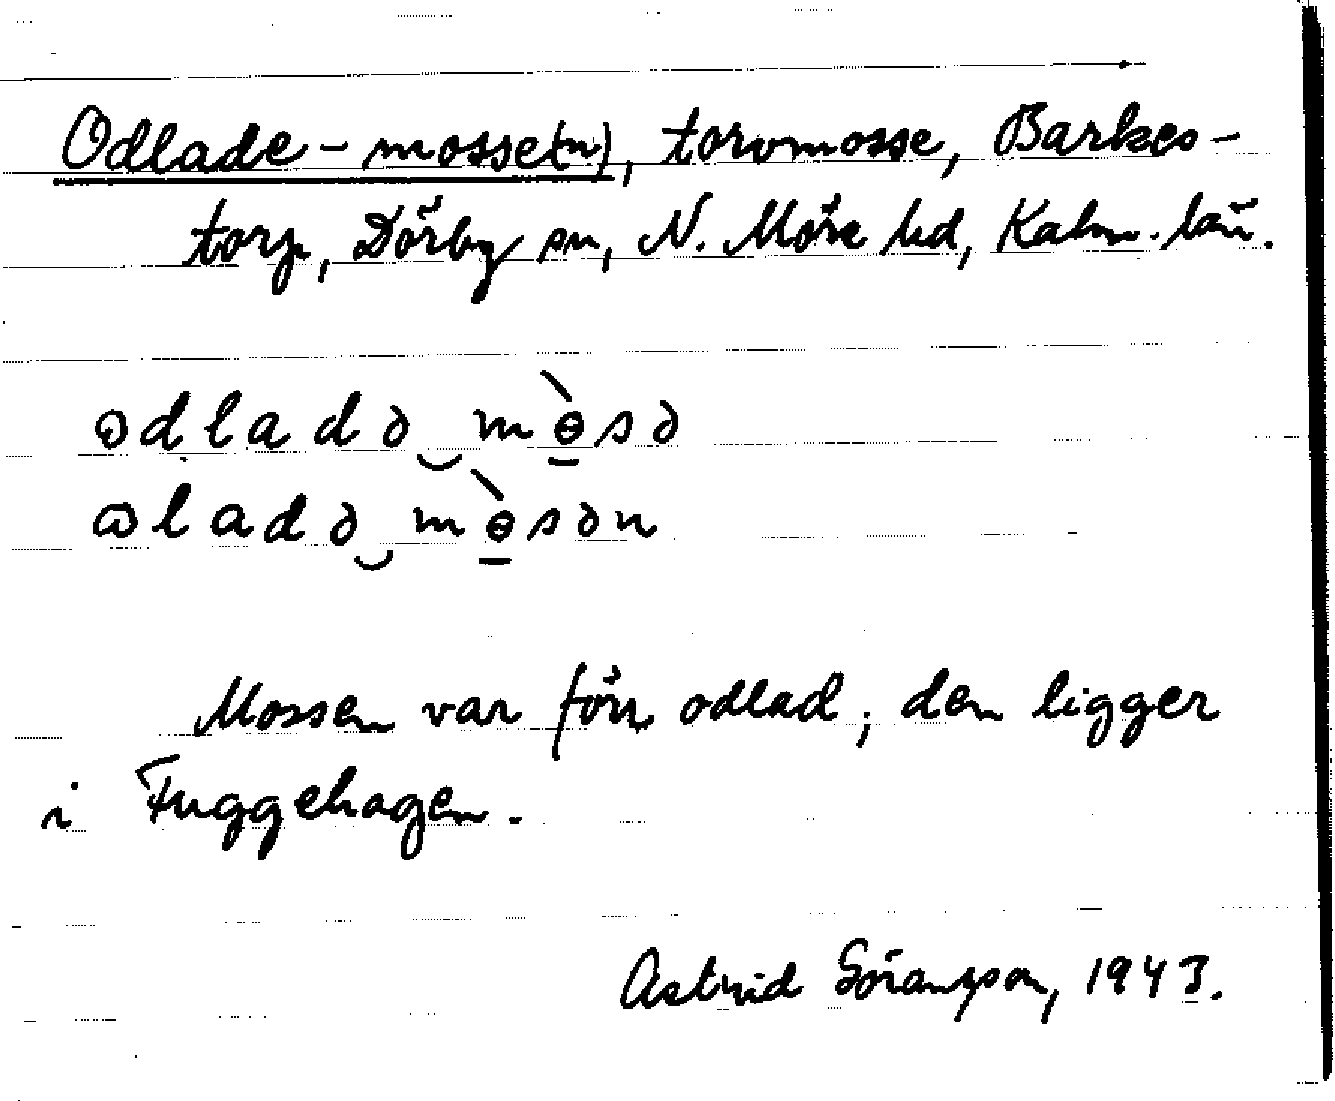 Odlade-mosse(n), torvmosse, Barkes-
torp, Dörby sn, N. Möre hd, Kalm. län.
ɷdladə‿mɵ̱̀sə
ɷladə‿mɵ̱̀sən
Mossen var förr odlad; den ligger
i Fuggehagen.
Astrid Göransson, 1943.